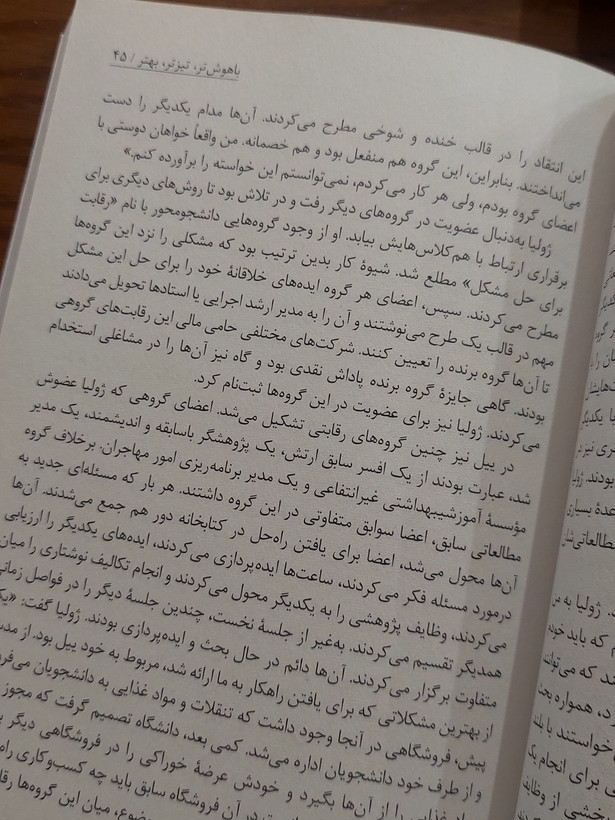 باهوش‌تر، تیزتر، بهتر / ۴۵
این انتقاد را در قالب خنده و شوخی مطرح می‌کردند. آن‌ها مدام یکدیگر را دست
می‌انداختند. بنابراین، این گروه هم منفعل بود و هم خصمانه. من واقعاً خواهان دوستی با
اعضای گروه بودم، ولی هر کار می‌کردم، نمی‌توانستم این خواسته را برآورده کنم.»
ژولیا به‌دنبال عضویت در گروه‌های دیگر رفت و در تلاش بود تا روش‌های دیگری برای
برقراری ارتباط با هم‌کلاس‌هایش بیابد. او از وجود گروه‌هایی دانشجومحور با نام «رقابت
برای حل مشکل» مطلع شد. شیوهٔ کار بدین ترتیب بود که مشکلی را نزد این گروه‌ها
مطرح می‌کردند. سپس، اعضای هر گروه ایده‌های خلاقانهٔ خود را برای حل این مشکل
مهم در قالب یک طرح می‌نوشتند و آن را به مدیر ارشد اجرایی یا استادها تحویل می‌دادند
تا آن‌ها گروه برنده را تعیین کنند. شرکت‌های مختلفی حامی مالی این رقابت‌های گروهی
بودند. گاهی جایزهٔ گروه برنده پاداش نقدی بود و گاه نیز آن‌ها را در مشاغلی استخدام
می‌کردند. ژولیا نیز برای عضویت در این گروه‌ها ثبت‌نام کرد.
در ییل نیز چنین گروه‌های رقابتی تشکیل می‌شد. اعضای گروهی که ژولیا عضوش
شد، عبارت بودند از یک افسر سابق ارتش، یک پژوهشگر باسابقه و اندیشمند، یک مدیر
مؤسسهٔ آموزشی‌بهداشتی غیرانتفاعی و یک مدیر برنامه‌ریزی امور مهاجران. برخلاف گروه
مطالعاتی سابق، اعضا سوابق متفاوتی در این گروه داشتند. هر بار که مسئله‌ای جدید به
آن‌ها محول می‌شد، اعضا برای یافتن راه‌حل در کتابخانه دور هم جمع می‌شدند. آن‌ها
درمورد مسئله فکر می‌کردند، ساعت‌ها ایده‌پردازی می‌کردند، ایده‌های یکدیگر را ارزیابی
می‌کردند، وظایف پژوهشی را به یکدیگر محول می‌کردند و انجام تکالیف نوشتاری را میان
همدیگر تقسیم می‌کردند. به‌غیر از جلسهٔ نخست، چندین جلسهٔ دیگر را در فواصل زمانی
متفاوت برگزار می‌کردند. آن‌ها دائم در حال بحث و ایده‌پردازی بودند. ژولیا گفت:
از بهترین مشکلاتی که برای یافتن راهکار به ما ارائه شد، مربوط به خود ییل بود. از
پیش، فروشگاهی در آنجا وجود داشت که تنقلات و مواد غذایی به دانشجویان
و از طرف خود دانشجویان اداره می‌شد. کمی بعد، دانشگاه تصمیم گرفت که مجوز
غذایی را از آن‌ها بگیرد و خودش عرضهٔ خوراکی را در فروشگاهی دیگر
در آن فروشگاه سابق باید چه کسب‌وکاری
میان این گروه‌ها